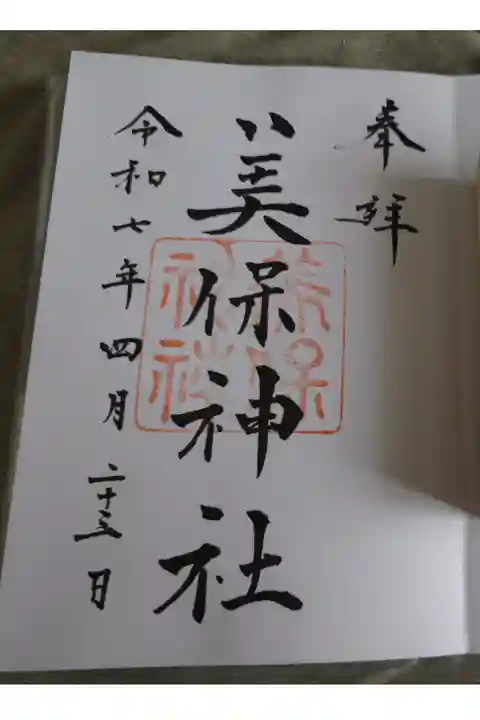 奉拝
美保神社
美保神社
令和七年四月二十三日